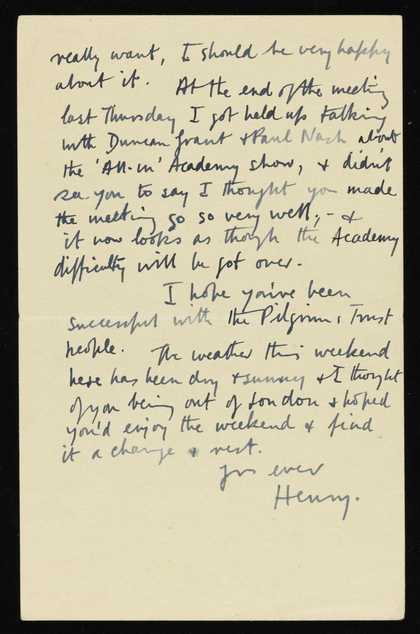 really want, I should be very happy
about it. At the end of the meeting
last Thursday I got held up talking
with Duncan Grant & Paul Nash about
the 'All-in' Academy show, & didn't
see you to say I thought you made
the meeting go so very well, - &
it now looks as though the Academy
difficulty will be got over.
I hope you've been
successful with the Pilgrims Trust
people. The weather this weekend
here has been dry & sunny & I thought
of you being out of London & hoped
you'd enjoy the weekend & find
it a change & rest.
yrs ever
Henry.